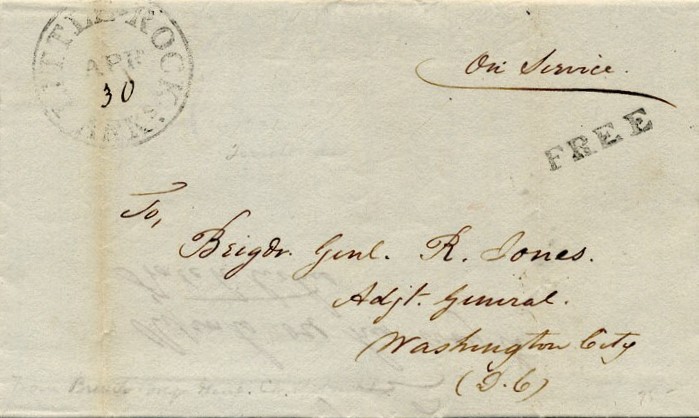 LITTLE-ROCK
ARKS
APR
30
On Service.
FREE
To,
Brigdr. Genl. R. Jones.
Adjt. General.
Washington City
(D.C)